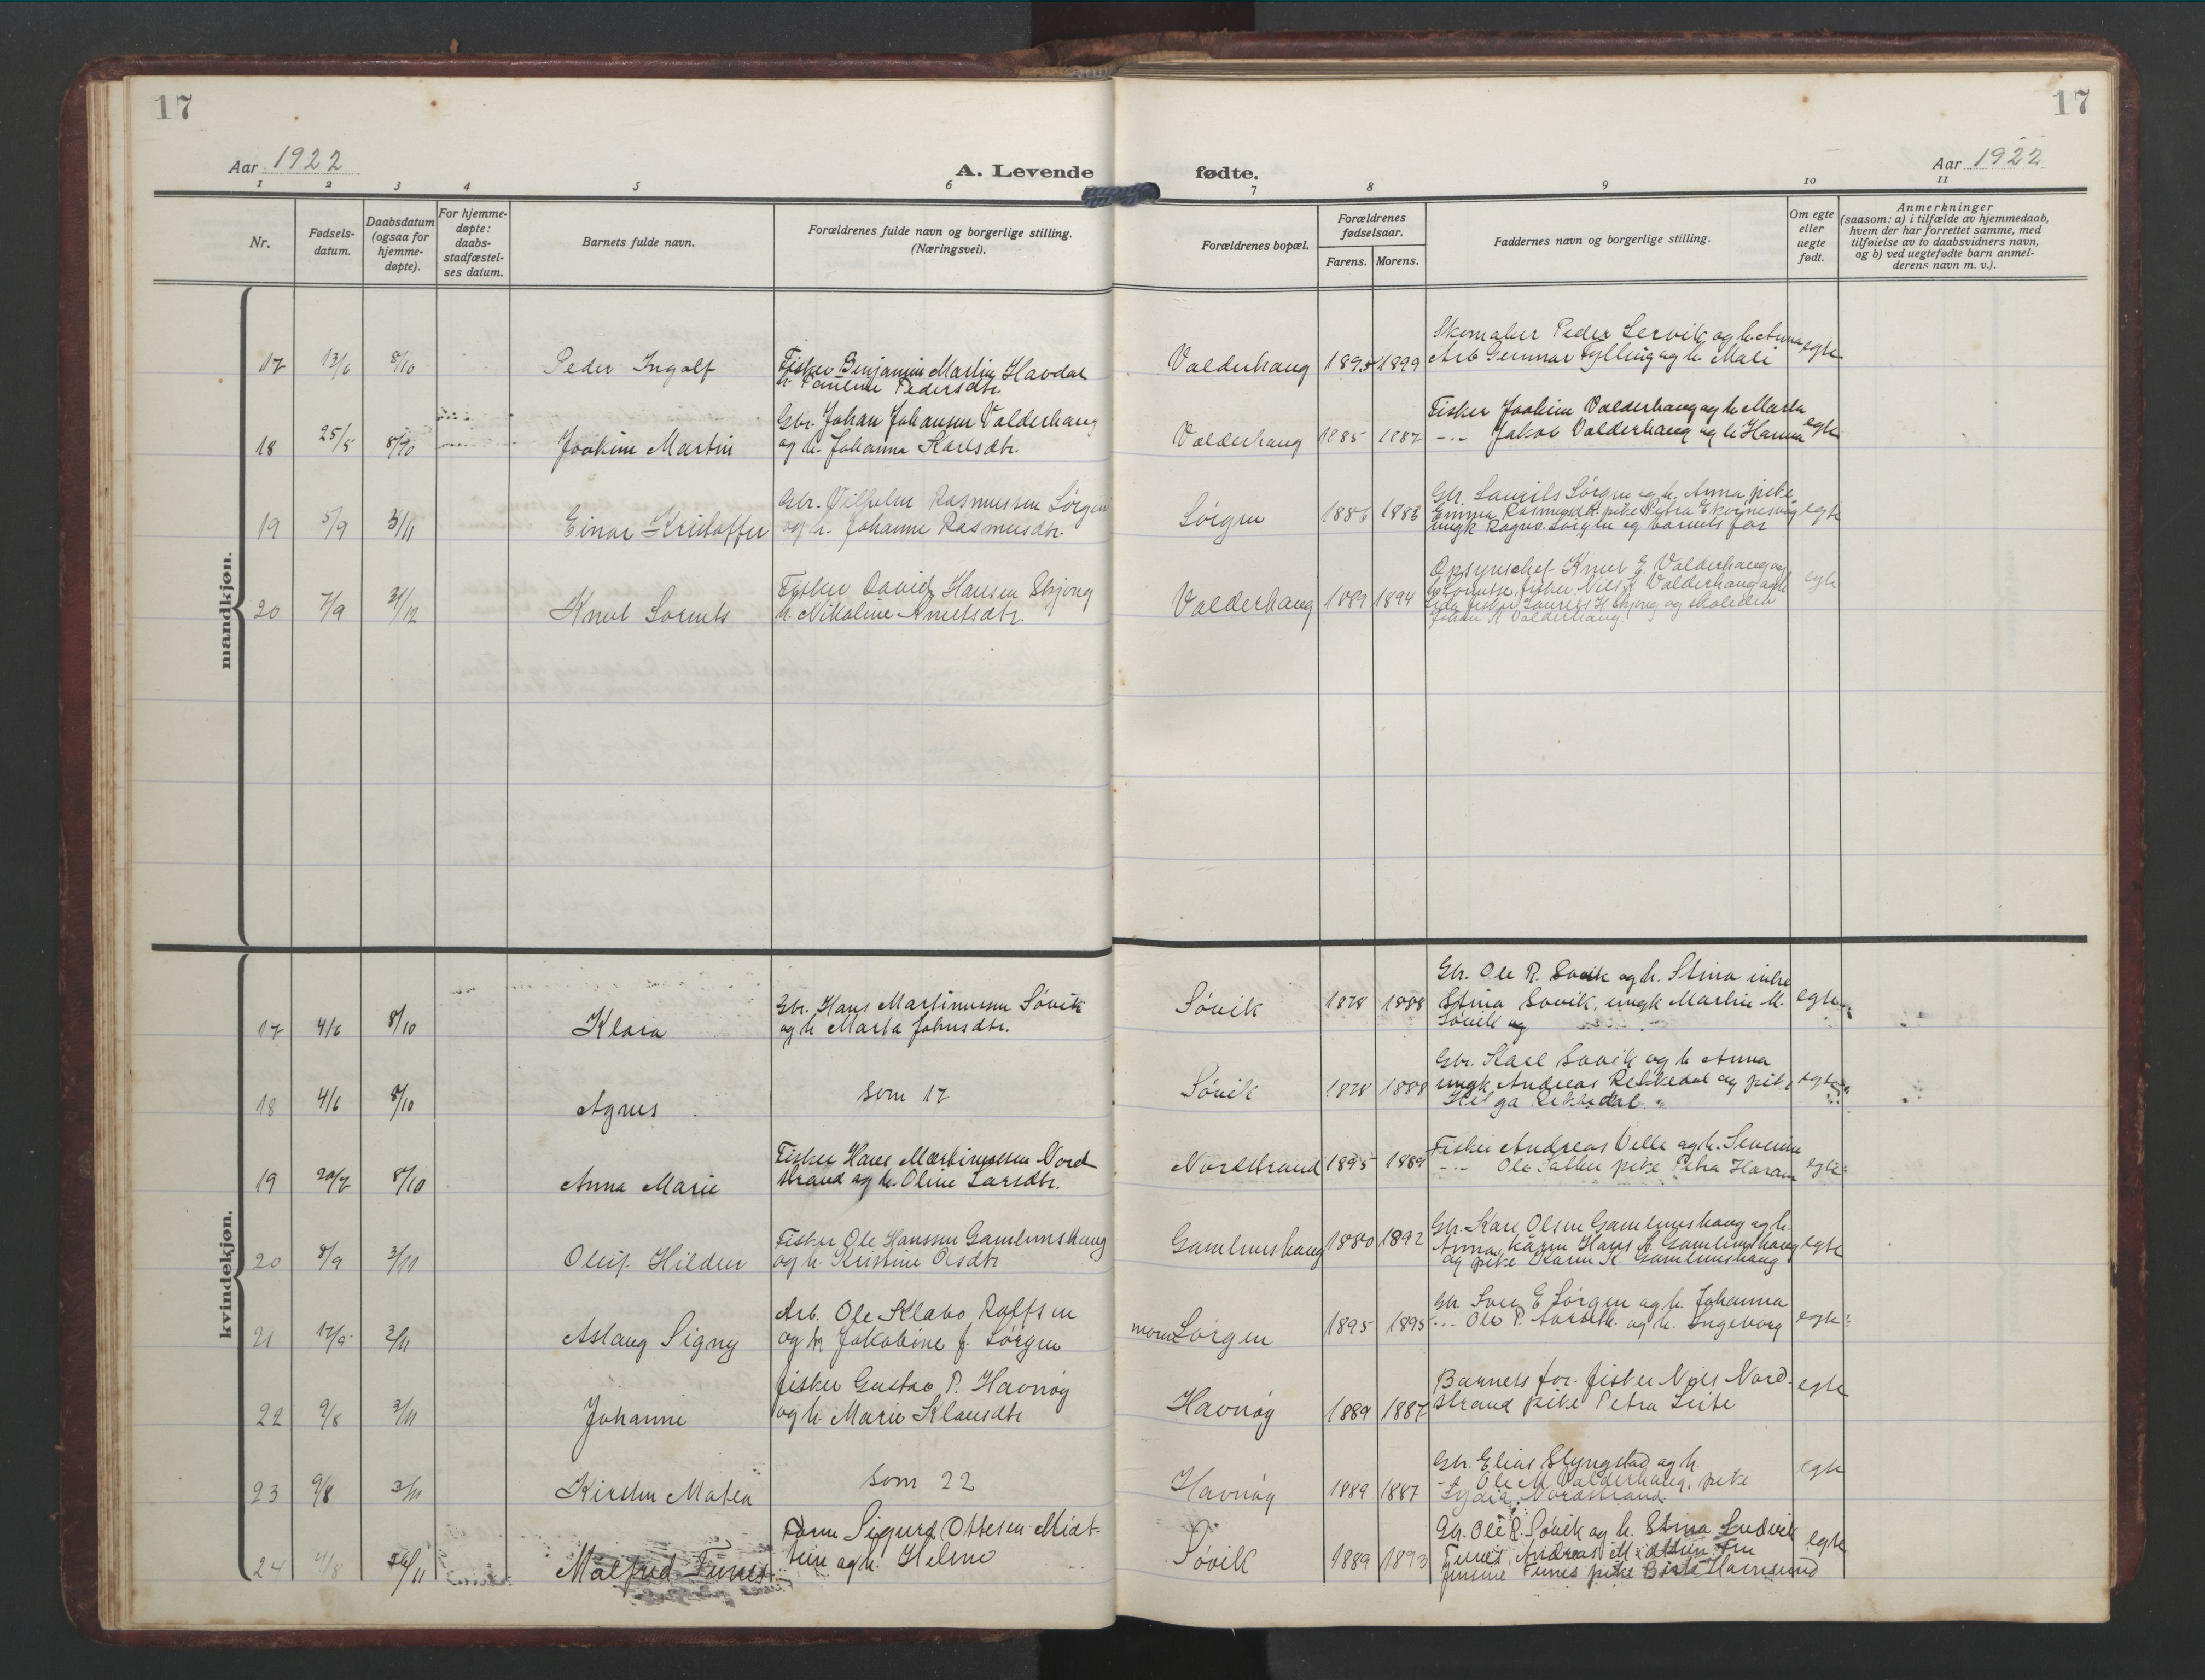 17
17
Aar 1922
A. Levende fødte.
Aar 1922
1 2 3 4 5 6 7 8 9 10 11
Nr.
Fødselsdatum.
Daabsdatum (ogsaa for hjemmedøpte).
For hjemmedøpte: daabsstadfæstelses datum.
Barnets fulde navn.
Forældrenes fulde navn og borgerlige stilling. (Næringsvei).
Forældrenes bopæl.
Forældrenes fødselsaar.
Farens. Morens.
Faddernes navn og borgerlige stilling.
Om egte eller uegte født.
Anmerkninger (saasom: a) i tilfælde av hjemmedaab, hvem der har forrettet samme, med tilføielse av to daabsvidners navn, og b) ved uegtefødte barn anmelderens navn m. v.).
mandkjøn.
17 13/6 8/10 Peder Ingolf
Fisker Benjamin Martin Havdal
h. Pauline Pedersdtr.
Valderhaug 1895 1899
Skomaker Peder Lervik og h. Anna
Arb Gunnar Fylling og h. Mali
egte
18 25/5 8/10 Joakim Martin
Gbr. Johan Johansen Valderhaug
og h. Johanna Karlsdtr.
Valderhaug 1885 1887
Fisker Joakim Valderhaug og h. Marta
-"- Jakob Valderhaug og h. Hanna
egte
19 5/9 3/11 Einar Kristoffer
Gbr. Vilhelm Rasmussen Sørgen
og h. Johanne Rasmusdtr.
Sørgen 1886 1886
Gbr. Laurits Sørgen og h. Anna, pike
Emma Rasmusdtr. pike Petra
ungk Ragnv. Sørgen og barnets far
egte
20 7/9 31/12 Knut Lorents
Fisker David Hansen Skjong
h. Nikoline Knutsdtr.
Valderhaug 1889 1894
Opsynschef Knut E Valderhaug og
h. Lorentse, fisker Nils K Valderhaug og h.
fisker Laurits H. Skjong og
Johan K Valderhaug.
egte
kvindekjøn.
17 4/6 8/10 Klara
Gbr. Hans Martinussen Søvik
og h. Marta Johnsdtr.
Søvik 1878 1888
Gbr. Ole R. Søvik og h. Stina enke
Stina Søvik, ungk Martin M.
Søvik og
egte
18 4/6 8/10 Agnes
som 17
Søvik 1878 1888
Gbr. Karl Søvik og h. Anna
ungk Andreas Rekkedal og pike
Helga Rekkedal
egte
19 20/7 8/10 Anna Marie
Fisker Hans Martinussen Nord
strand og h. Oline Larsdtr.
Nordstrand 1895 1889
Fisker Andreas Velle og h. Severine
-"- Ole Sætter pike Petra Haram
egte
20 8/9 3/11 Oleif Hildur
Fisker Ole Hanssen Gamlemshaug
og h. Kristine Olsdtr
Gamlemshaug 1880 1892
Gbr. Karl Olsen Gamlemshaug og h.
Anna, Hans A Gamlemshaug
og pike Karen K. Gamlemshaug
egte
21 17/9 3/11 Aslaug Signy
Arb. Ole Klabo Rolfsen
og h. Jakobine f. Sørgen
moren Sørgen 1895 1895
Gbr. Sven E Sørgen og h. Johanna
-"- Ole P. og h. Ingeborg
egte
22 9/8 3/11 Johanne
fisker Gustav P. Havnøy
og h. Marie Klausdtr
Havnøy 1889 1887
Barnets far. fisker Nils Nord
strand pike Petra Leite
egte
23 9/8 3/11 Kirsten Matea
som 22
Havnøy 1889 1887
Gbr. Elias Slyngstad og h.
-"- Ole M Valderhaug, pike
Lydia Nordstrand.
egte
24 4/8 26/11 Målfrid Funes
Sigurd Ottesen Midt-
tun og h. Helene
Søvik 1889 1893
Gbr. Ole R. Søvik og h. Stina Ludvik
Funes, Andreas Midttun Fru
Funes pike Harnesund
egte